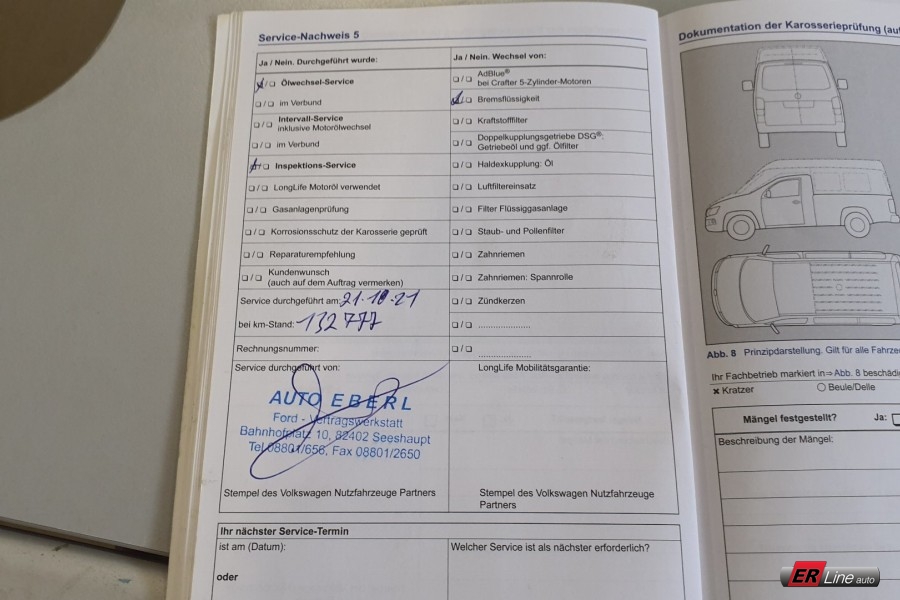 Service-Nachweis 5
Ja / Nein. Durchgeführt wurde:
Ja / Nein. Wechsel von:
☐ / ☐ Ölwechsel-Service
☐ / ☐ AdBlue®
bei Crafter 5-Zylinder-Motoren
☐ / ☐ im Verbund
☐ / ☐ Bremsflüssigkeit
☐ / ☐ Intervall-Service
inklusive Motorölwechsel
☐ / ☐ Kraftstofffilter
☐ / ☐ im Verbund
☐ / ☐ Doppelkupplungsgetriebe DSG®:
Getriebeöl und ggf. Ölfilter
☐ / ☐ Inspektions-Service
☐ / ☐ Haldexkupplung: Öl
☐ / ☐ LongLife Motoröl verwendet
☐ / ☐ Luftfiltereinsatz
☐ / ☐ Gasanlagenprüfung
☐ / ☐ Filter Flüssiggasanlage
☐ / ☐ Korrosionsschutz der Karosserie geprüft
☐ / ☐ Staub- und Pollenfilter
☐ / ☐ Reparaturempfehlung
☐ / ☐ Zahnriemen
☐ / ☐ Kundenwunsch
(auch auf dem Auftrag vermerken)
☐ / ☐ Zahnriemen: Spannrolle
Service durchgeführt am: 21.10.21
☐ / ☐ Zündkerzen
bei km-Stand: 132777
☐ / ☐ .....................
Rechnungsnummer:
☐ / ☐ .....................
Service durchgeführt von:
LongLife Mobilitätsgarantie:
AUTO EBERL
Ford - Vertragswerkstatt
Bahnhofplatz 10, 82402 Seeshaupt
Tel. 08801/656, Fax 08801/2650
Stempel des Volkswagen Nutzfahrzeuge Partners
Stempel des Volkswagen Nutzfahrzeuge
Partners
Ihr nächster Service-Termin
ist am (Datum):
Welcher Service ist als nächster erforderlich?
oder
Dokumentation der Karosserieprüfung (auf
Abb. 8 Prinzipdarstellung. Gilt für alle Fahrze
Ihr Fachbetrieb markiert in ⇒ Abb. 8 beschädi
✖ Kratzer ○ Beule/Delle
Mängel festgestellt? Ja: ☐
Beschreibung der Mängel:
ER Line auto